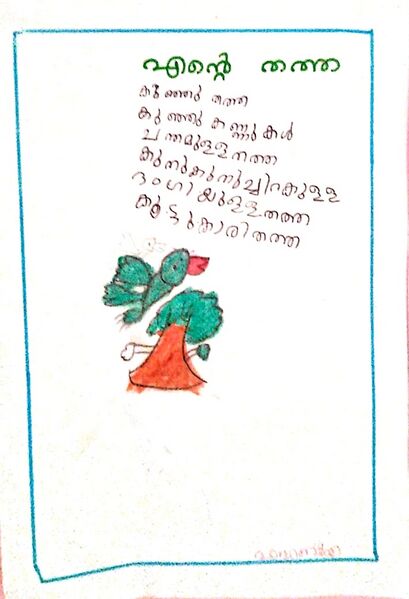 എന്റെ തത്ത
കുഞ്ഞു തത്ത
കുഞ്ഞു കണ്ണുകൾ
ചന്തമുള്ള തത്ത
കുനുകുനുച്ചിറകുള്ള
ഭംഗിയുള്ള തത്ത
കൂട്ടുകാരി തത്ത